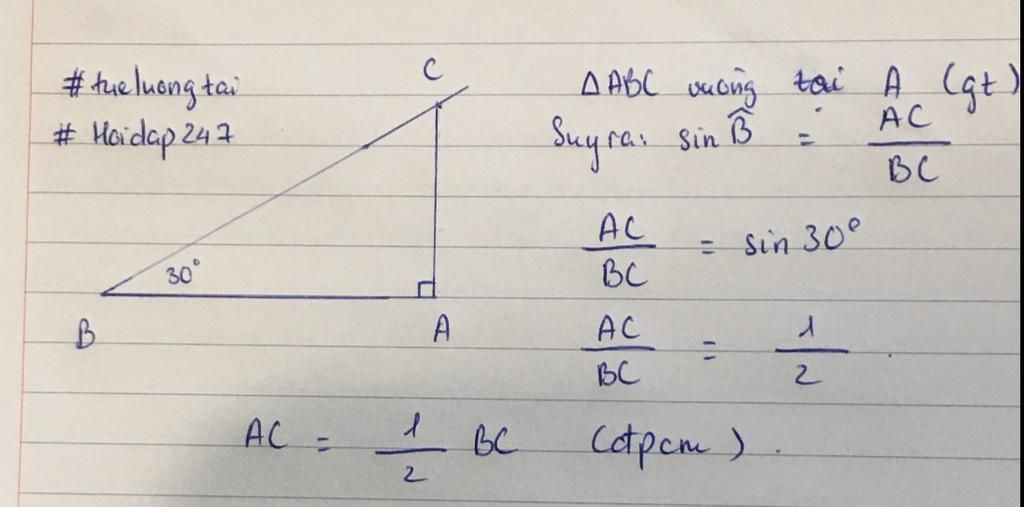 #tueluongtai
# Hoidap247
C
30°
B
A
ΔABC vuông tại A (gt)
Suy ra: sin B̂ = AC/BC
AC/BC = sin 30°
AC/BC = 1/2.
AC = 1/2 BC (đpcm).